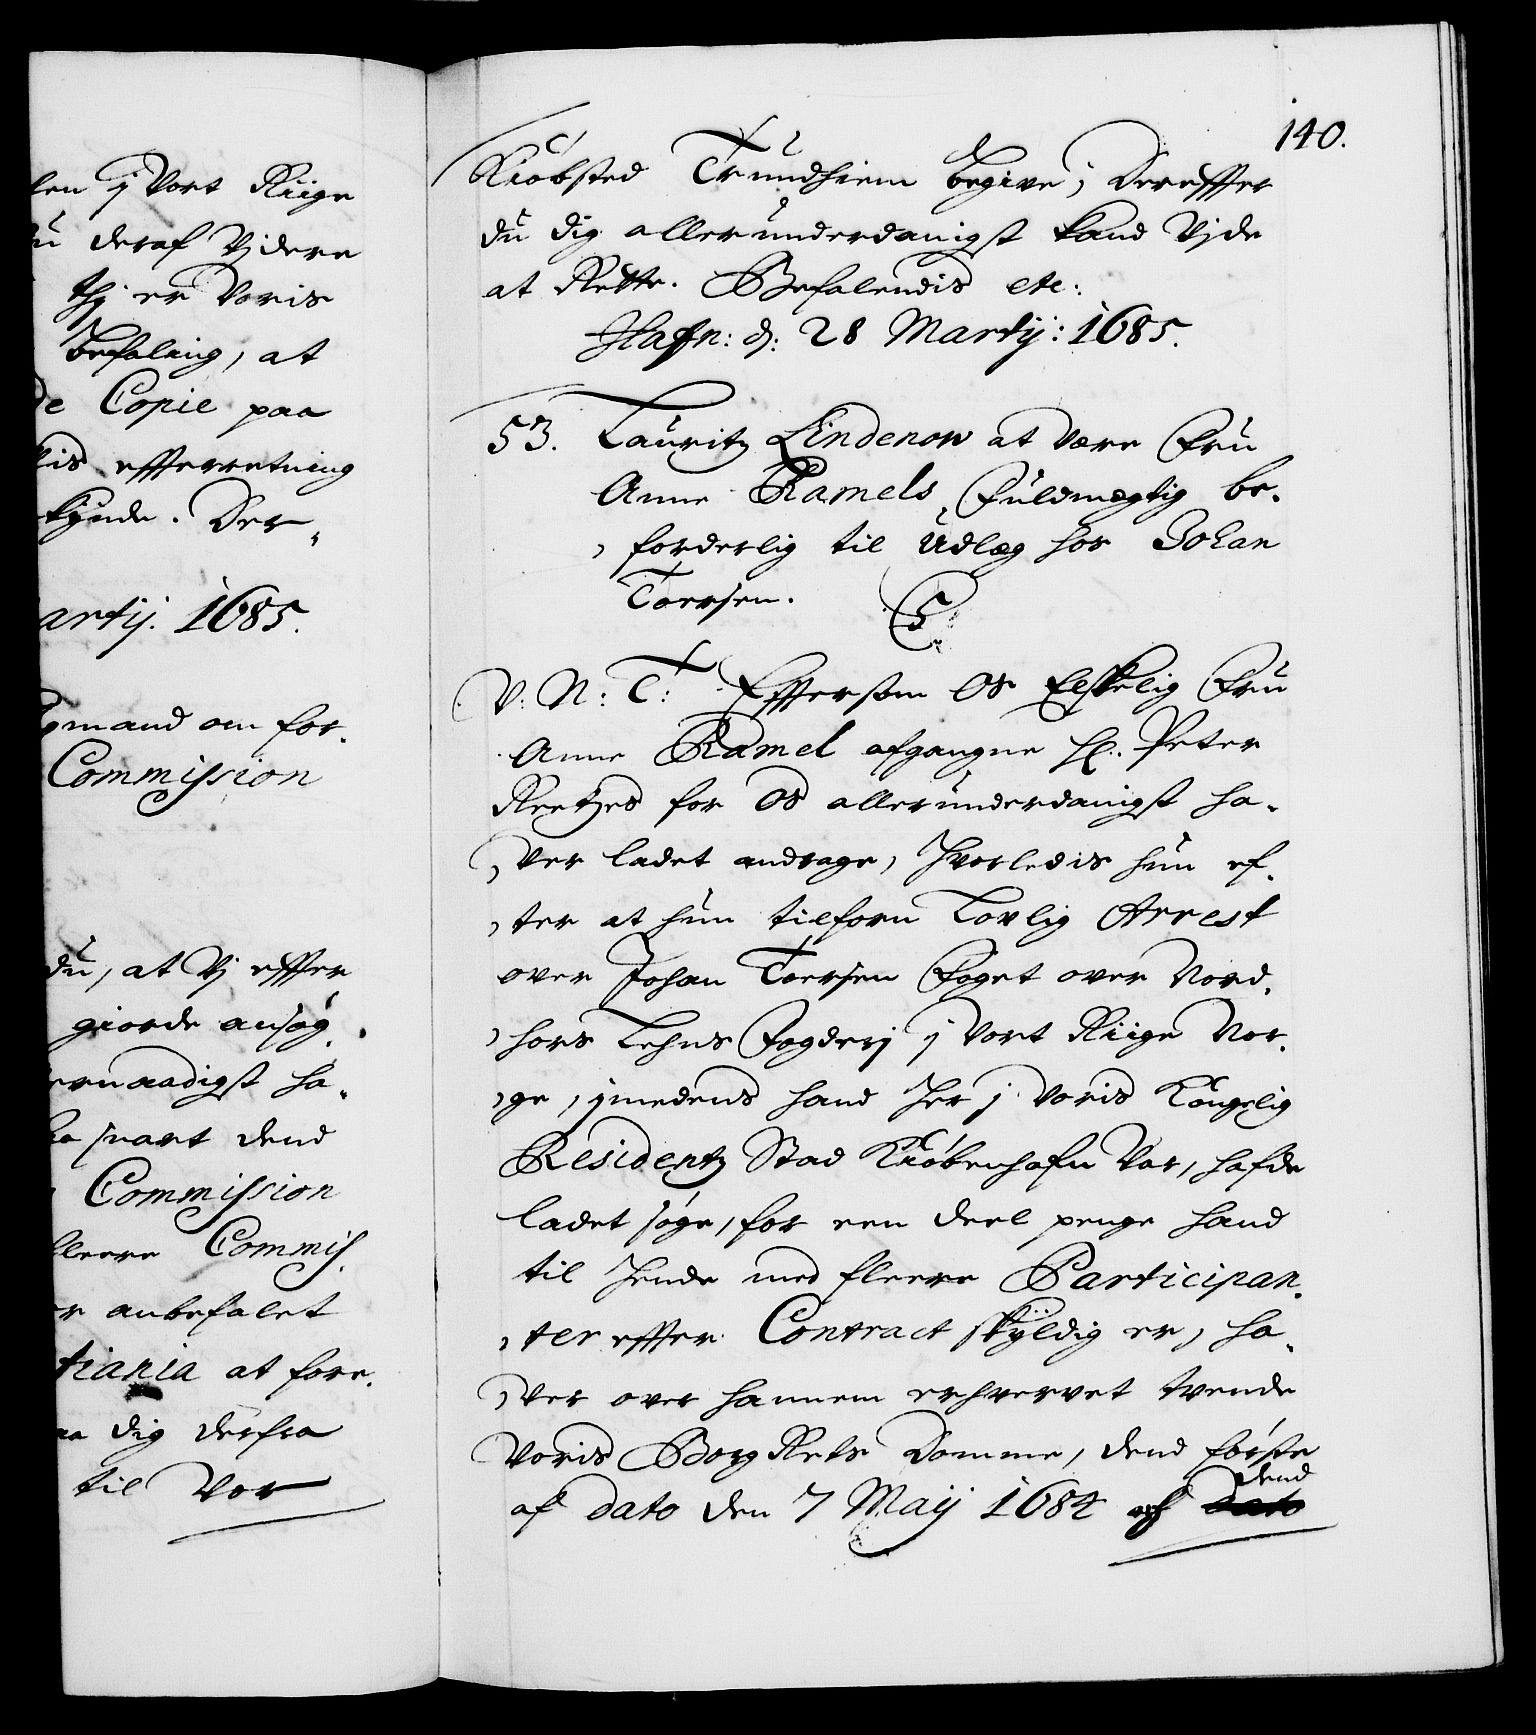 len j Vort Riige
u deraf Vjdere
thj er Voris
befaling, at
de Copie paa
dis effterretning
kynde. Der,
artij. 1685.
gmand om for,
Commission
du, at Vj effter
giorde ansøg,
ernaadigst ha,
saa snart dend
Commission
fleere Commis,
er anbefalet
tiania at fore,
aa dig derfra
til Vor
140.
Kiøbsted Trundhiem begive, Dereffter
du dig allerunderdanigst kand Vjde
at Rette. Befalendis etc:
Hafn: d: 28 Martij: 1685.
53. Lauritz Lindenow at være Fru
Anne Ramels Fuldmegtig be,
forderlig til Udlæg hos Johan
Toersen.
C5
V: N: T: Effter som Os Elskelig Fru
Anne Ramel afgangne Hr. Peter
Reetzes for Os allerunderdanigst ha,
ver ladet andrage, Hvorledis hun ef,
ter at hun tilforn Lovlig Arrest
over Johan Toersen Foget over Nord,
hors Lehns Fogderj j Vort Riige Nor,
ge, jmedens hand her j Voris Kongelig
Residentz Stad Kiøbenhafn Var, hafde
ladet søge, for een deel penge hand
til Hende med fleere Participan,
ter effter Contract skyldig er, ha,
ver over hannem erhvervet tvende
Voris Borg Rets Domme, dend første
af dato den 7 Maij 1684 af dato dend